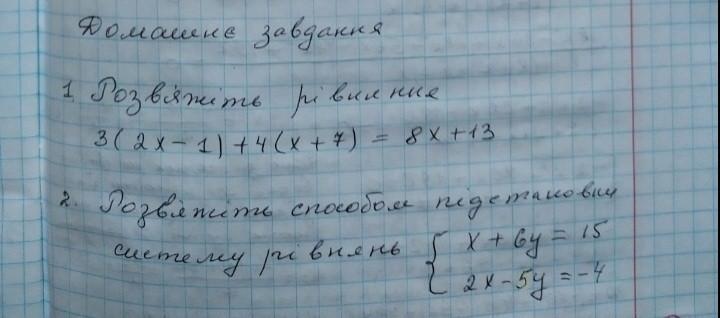 Домашнє завдання
1. Розв'яжіть рівняння
3(2x-1)+4(x+7) = 8x+13
2. Розв'яжіть способом підстановки
систему рівнянь { x + 6y = 15
2x - 5y = -4